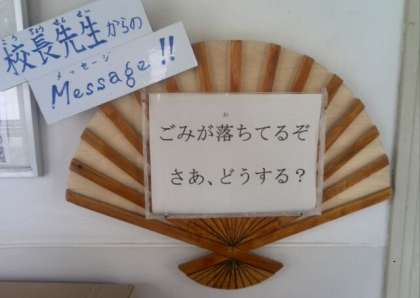 校長先生からの
こうちょうせんせい
メッセージ
Message!!
ごみが落ちてるぞ
お
さあ、どうする?